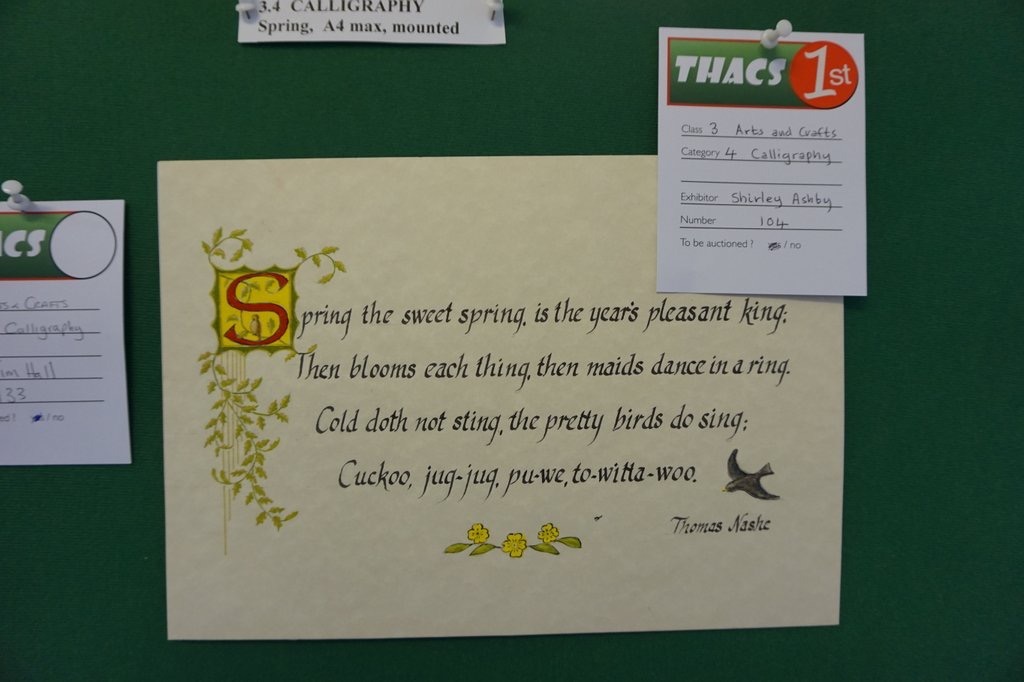 3.4 CALLIGRAPHY
Spring, A4 max, mounted
THACS 1st
Class 3 Arts and Crafts
Category 4 Calligraphy
Exhibitor Shirley Ashby
Number 104
To be auctioned? yes / no
Spring the sweet spring, is the year's pleasant king;
Then blooms each thing, then maids dance in a ring.
Cold doth not sting, the pretty birds do sing;
Cuckoo, jug-jug, pu-we, to-witta-woo.
Thomas Nashe
ACS
TS & CRAFTS
Calligraphy
im Hall
133
ed? yes / no